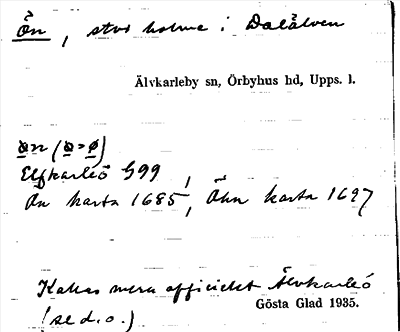 Ön, stor holme i Dalälven
Älvkarleby sn, Örbyhus hd, Upps. l.
ꝋn (ꝋ = ø)
Elfkarleö G99,
Ön karta 1685, Öhn karta 1697
Kallas mera officiellt Älvkarleö
(se d. o.)
Gösta Glad 1935.